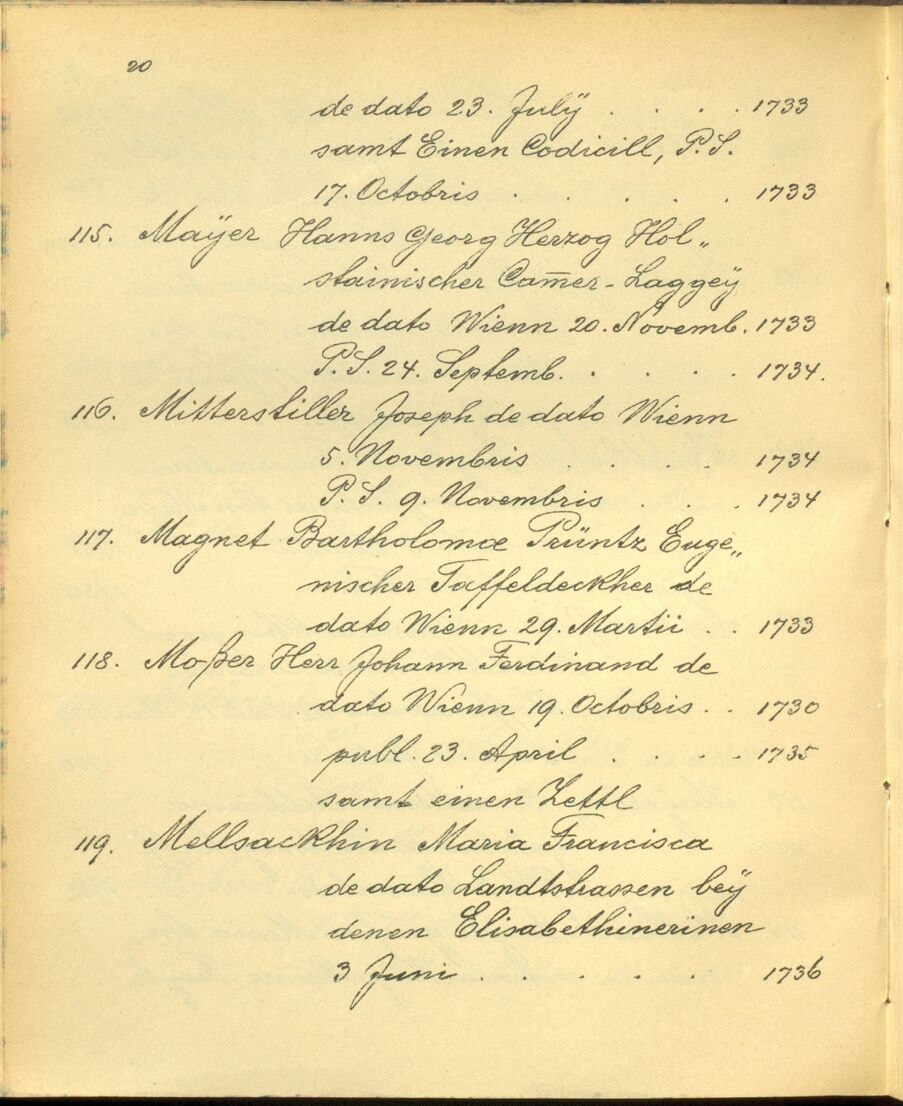 20
de dato 23. Julÿ . . . . 1733
samt Einen Codicill, P.S.
17. Octobris . . . . . 1733
115. Maÿer Hanns Georg Herzog Hol„
stainischer Cam̅er-Laggeÿ
de dato Wienn 20. Novemb. 1733
P.S. 24. Septemb. . . . . 1734.
116. Mitterstiller Joseph de dato Wienn
5. Novembris . . . . 1734
P.S. 9. Novembris . . . 1734
117. Magnet Bartholomæ Prüntz Euge„
nischer Taffeldeckher de
dato Wienn 29. Martii . . 1733
118. Moßer Herr Johann Ferdinand de
dato Wienn 19. Octobris . . 1730
publ. 23. April . . . . 1735
samt einen Zettl
119. Mellsackhin Maria Francisca
de dato Landtstrassen beÿ
denen Elisabethinerinen
3 Juni . . . . . 1736